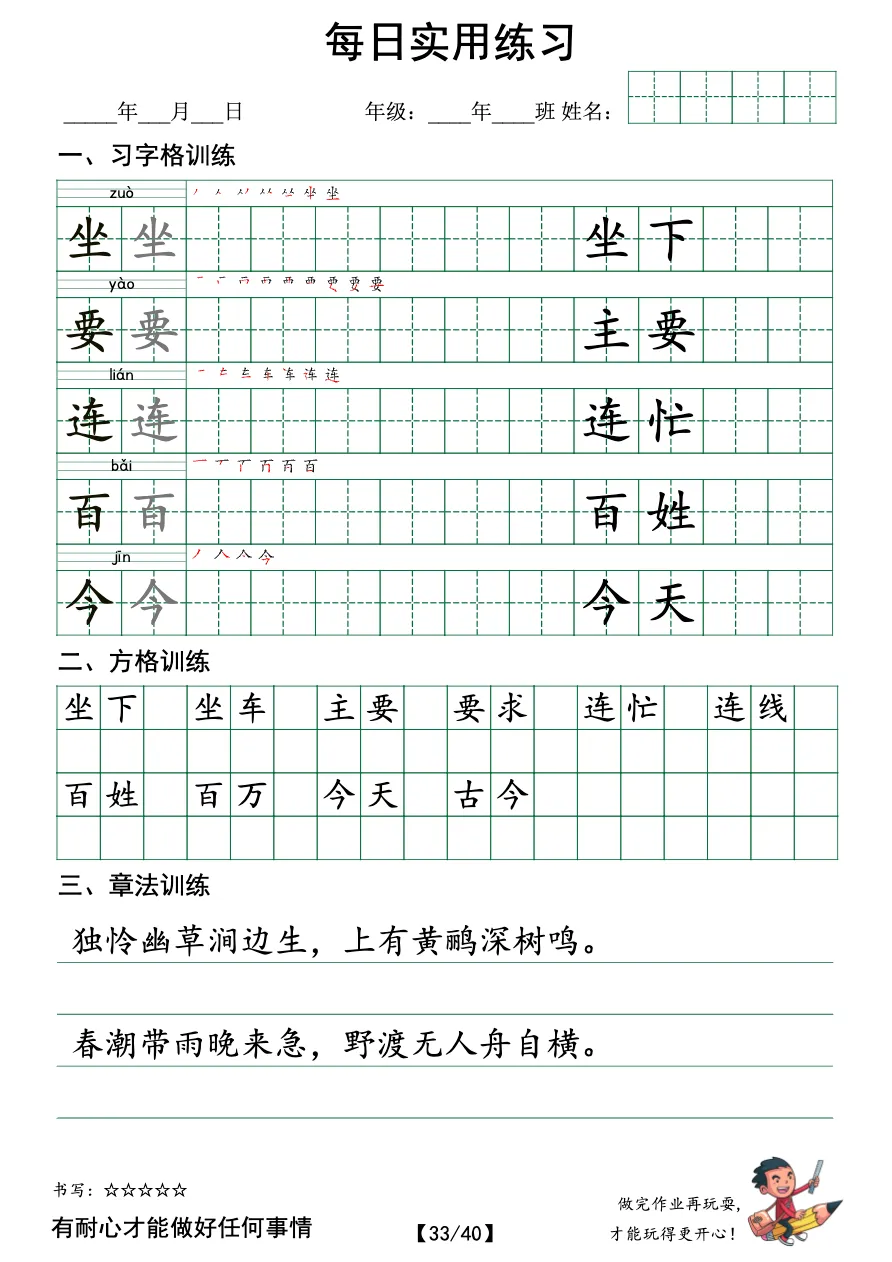 每日实用练习
_____年___月___日 年级：____年____班 姓名：
一、习字格训练
zuò
坐 坐 坐 下
yào
要 要 主 要
lián
连 连 连 忙
bǎi
百 百 百 姓
jīn
今 今 今 天
二、方格训练
坐 下 坐 车 主 要 要 求 连 忙 连 线
百 姓 百 万 今 天 古 今
三、章法训练
独怜幽草涧边生，上有黄鹂深树鸣。
春潮带雨晚来急，野渡无人舟自横。
书写：☆☆☆☆☆
有耐心才能做好任何事情
【33/40】
做完作业再玩耍，
才能玩得更开心！